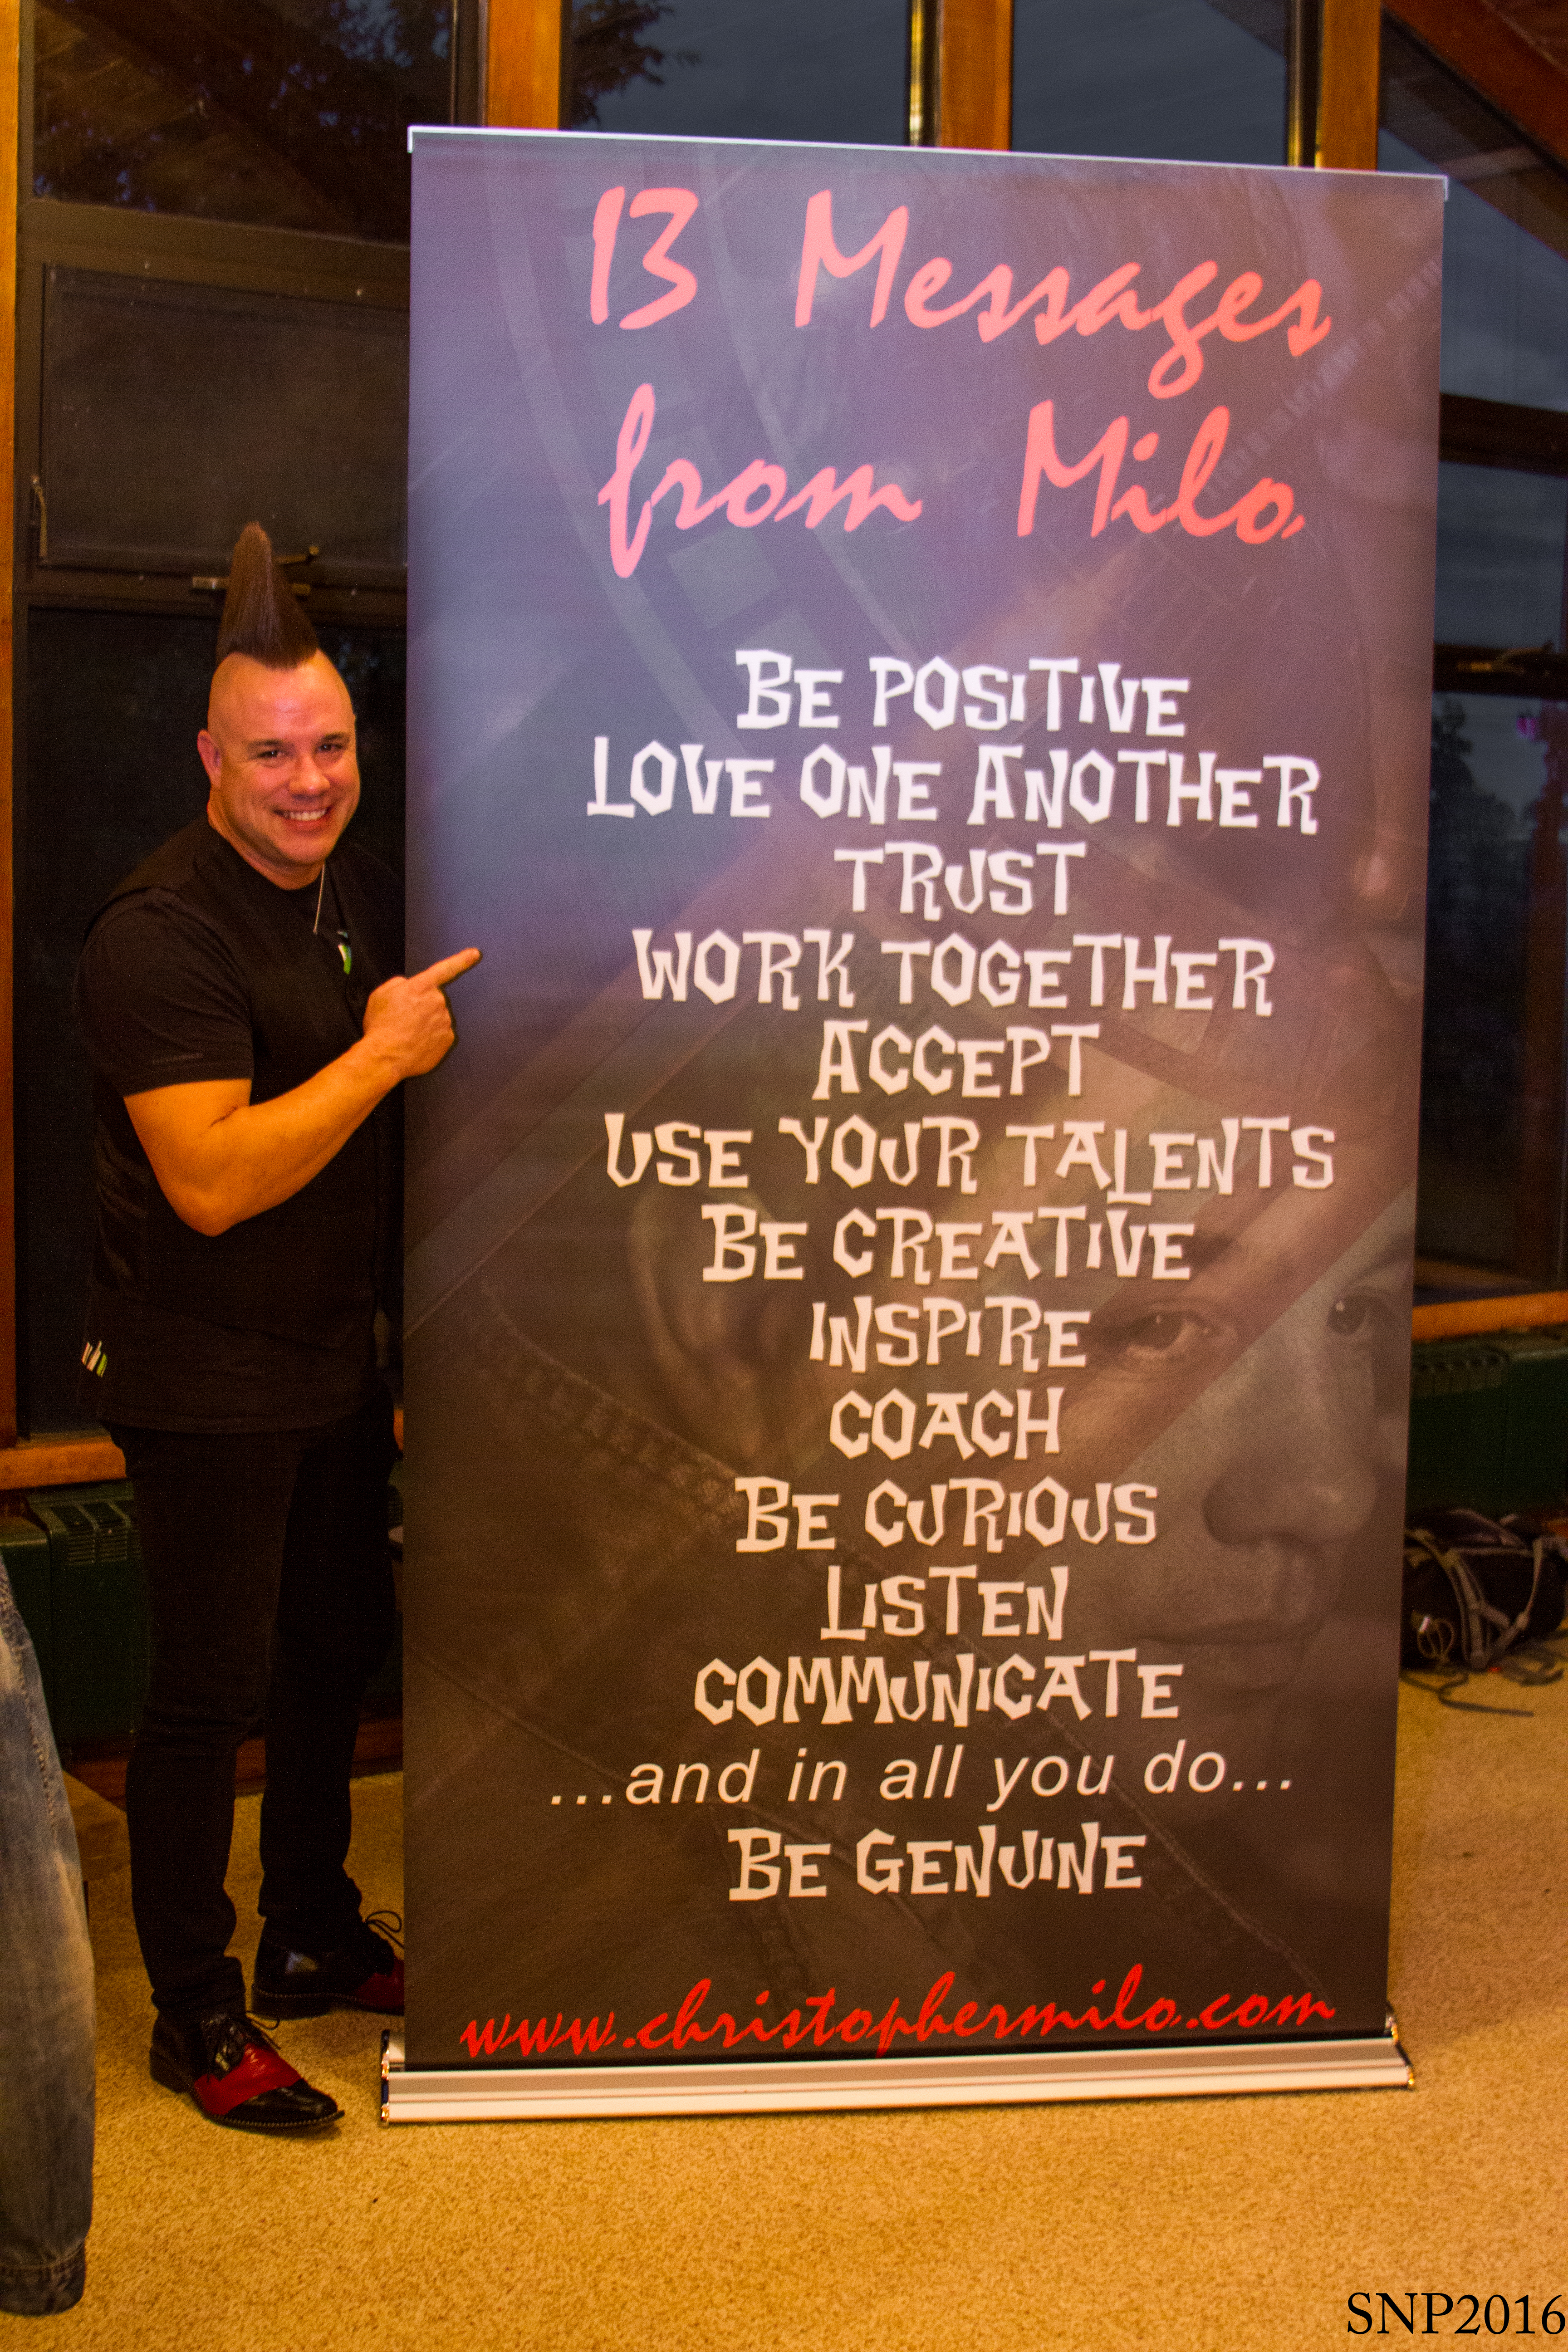 13 Messages
from Milo
BE POSITIVE
LOVE ONE ANOTHER
TRUST
WORK TOGETHER
ACCEPT
USE YOUR TALENTS
BE CREATIVE
INSPIRE
COACH
BE CURIOUS
LISTEN
COMMUNICATE
...and in all you do...
BE GENUINE
www.christophermilo.com
SNP2016